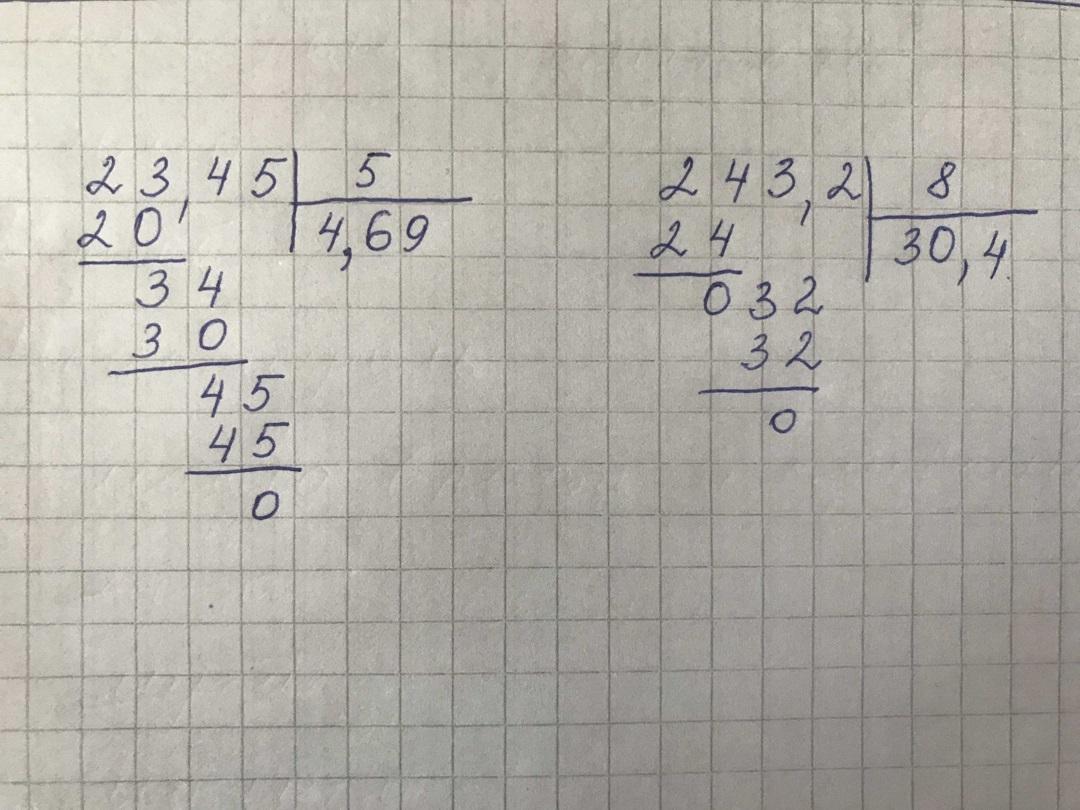 23,45 5
20 4,69
34
30
45
45
0
243,2 8
24 30,4
032
32
0